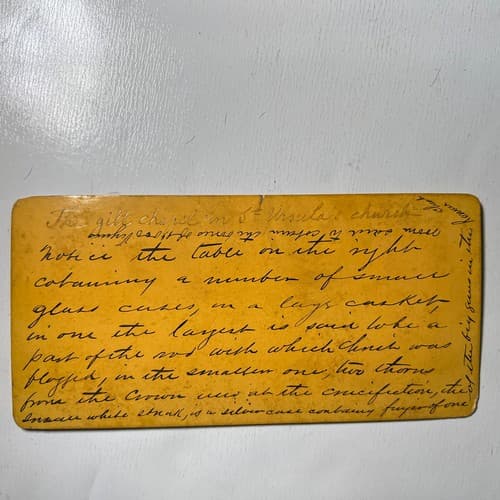 The gilt chapel in St Ursula's church
Notice the table on the right
cotaining a number of small
glass cases, on a large casket,
in one the largest is said to be a
part of the rod with which christ was
flogged, in the smaller one, two thorns
from the Crown used at the crucifiction, the
small white is a silver case containg finger of one
of the big guns in the Roman Church
seem said to contain the bones of